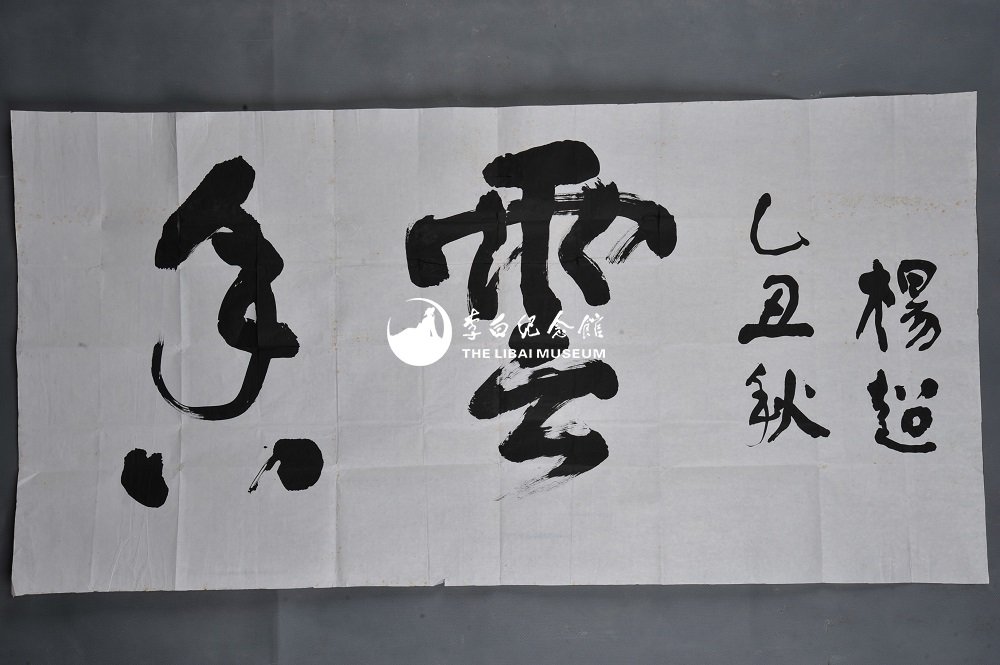 雲
乙丑秋
楊超
李白纪念館
THE LIBAI MUSEUM